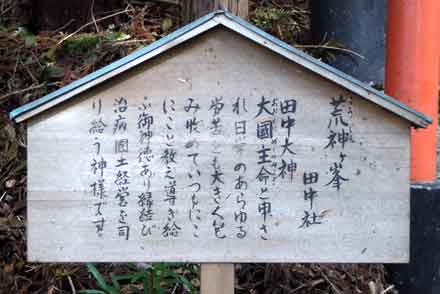 荒神ヶ峯
田中社
田中大神
大國主命と申さ
れ日常のあらゆる
労苦をも大きく包
み収めていつもにこ
にこと救え導き給
ふ御神徳あり縁結び
治病國土経営を司
り給う神様です